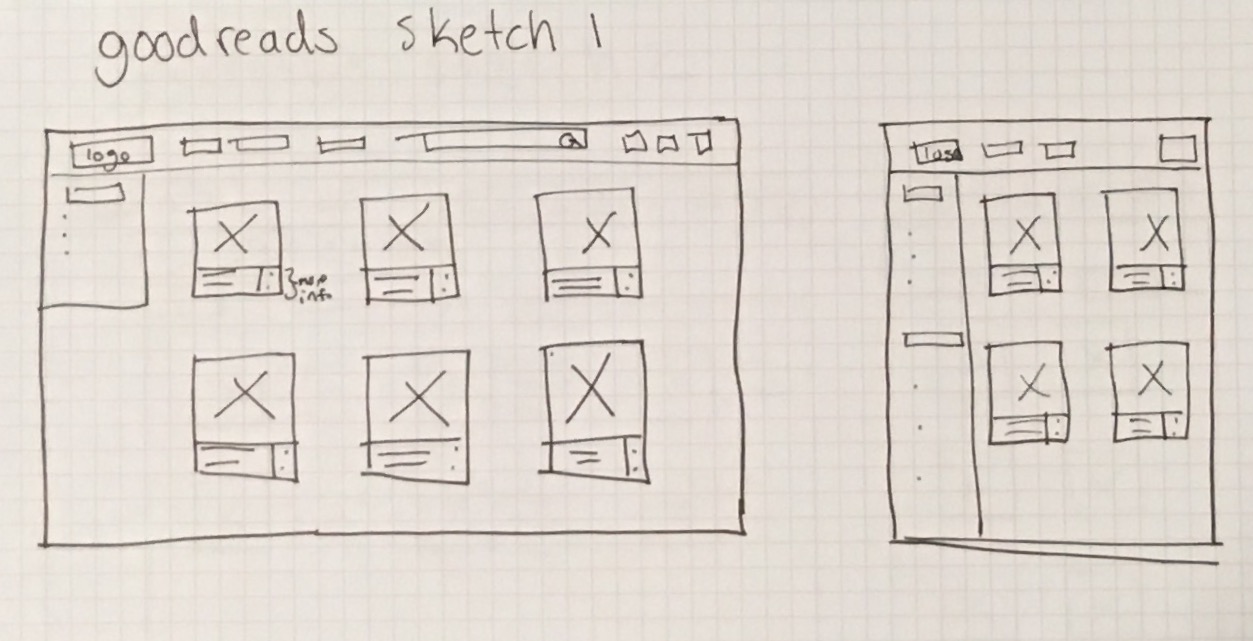 goodreads sketch 1
logo
more
info